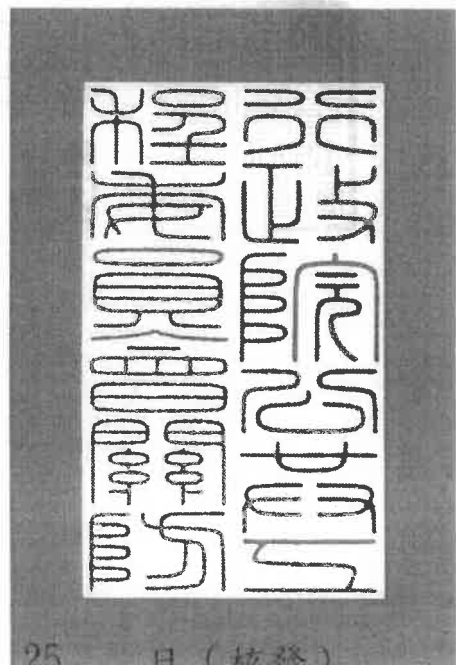 行政院公共工
程委員會關防
25 日(核發)